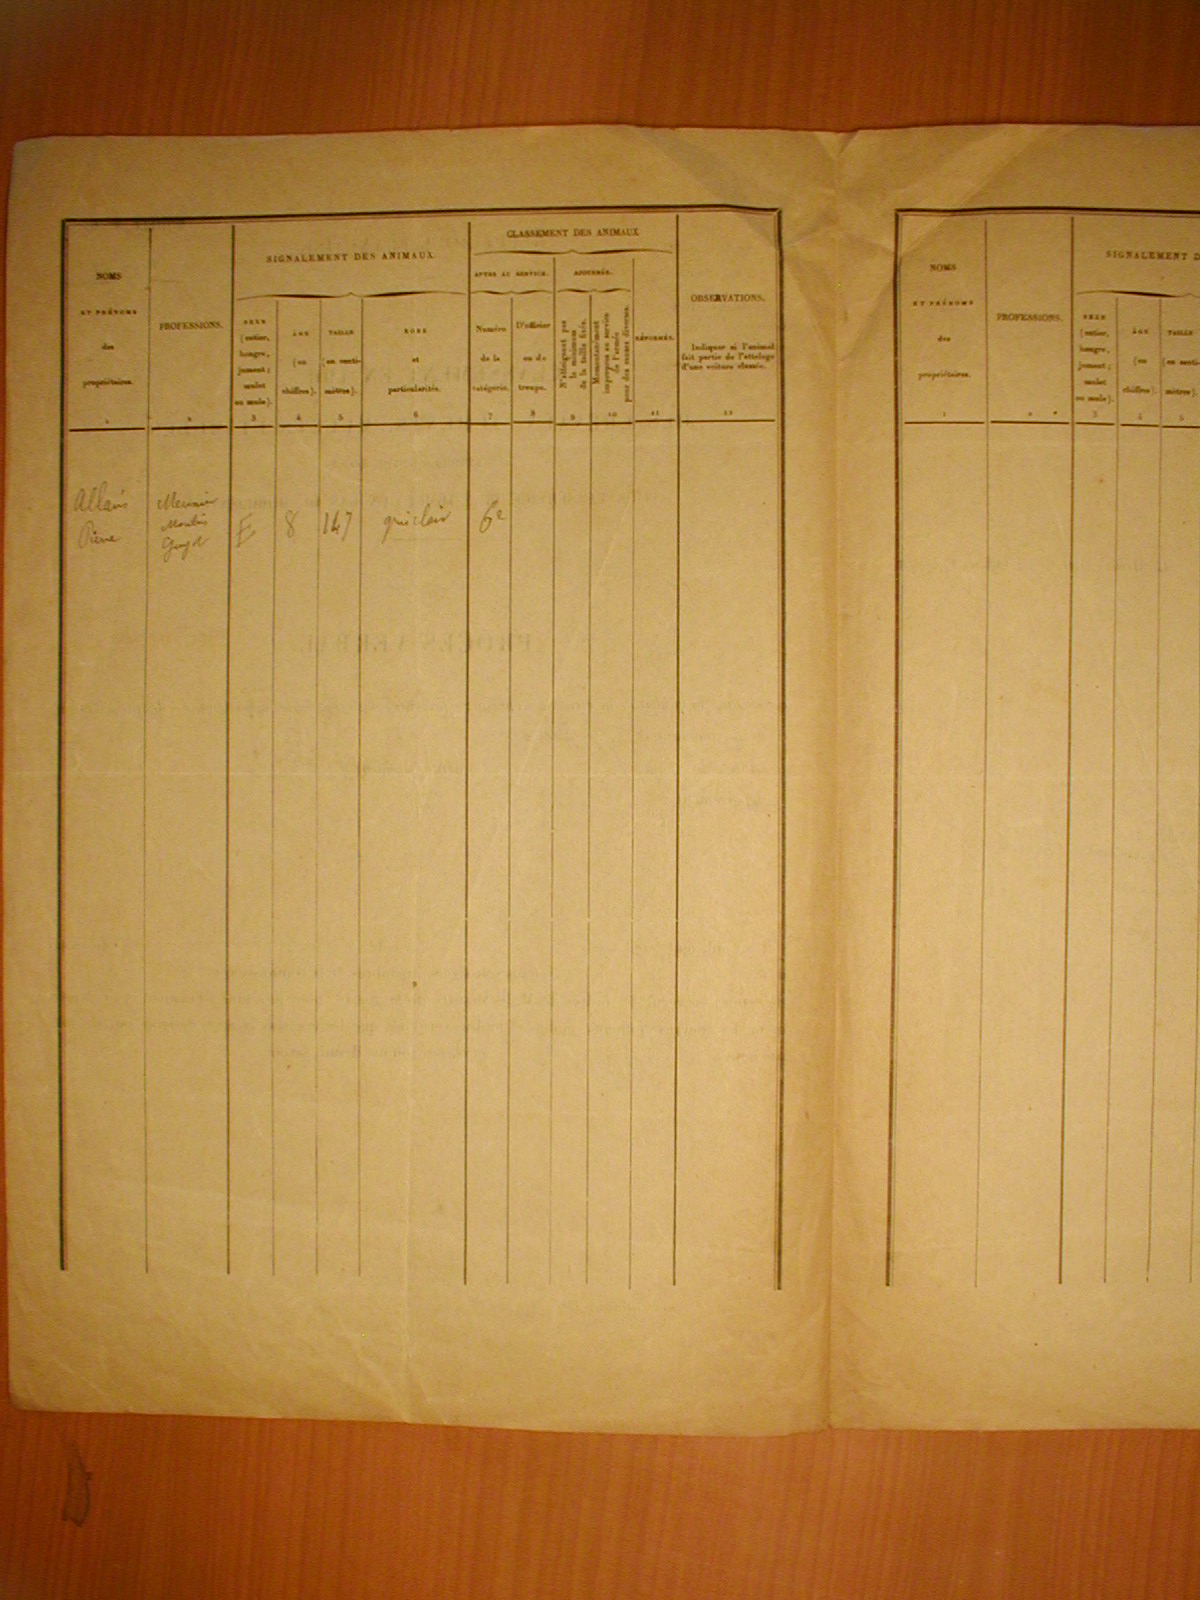 NOMS
ET PRÉNOMS
des
propriétaires.
1
PROFESSIONS.
2
SIGNALEMENT DES ANIMAUX
SEXE
(entier,
hongre,
jument;
mulet
ou mule).
3
ÂGE
(en
chiffres).
4
TAILLE
(en centi-
mètres).
5
ROBE
et
particularités.
6
CLASSEMENT DES ANIMAUX
APTES AU SERVICE.
Numéro
de la
catégorie.
7
D'officier
ou de
troupe.
8
AJOURNÉS.
N'atteignent pas
le minimum
de la taille fixée.
9
Momentanément
impropres au service
de l'armée
pour des causes diverses.
10
RÉFORMÉS.
11
OBSERVATIONS.
Indiquer si l'animal
fait partie de l'attelage
d'une voiture classée.
12
Allais
Pierre
Meunier
Moulin
E
8
147
gris clair
6e
PROCÈS-VERBAL
NOMS
ET PRÉNOMS
des
propriétaires.
1
PROFESSIONS.
2
SIGNALEMENT D
SEXE
(entier,
hongre,
jument;
mulet
ou mule).
3
ÂGE
(en
chiffres).
4
TAILLE
(en centi-
mètres).
5